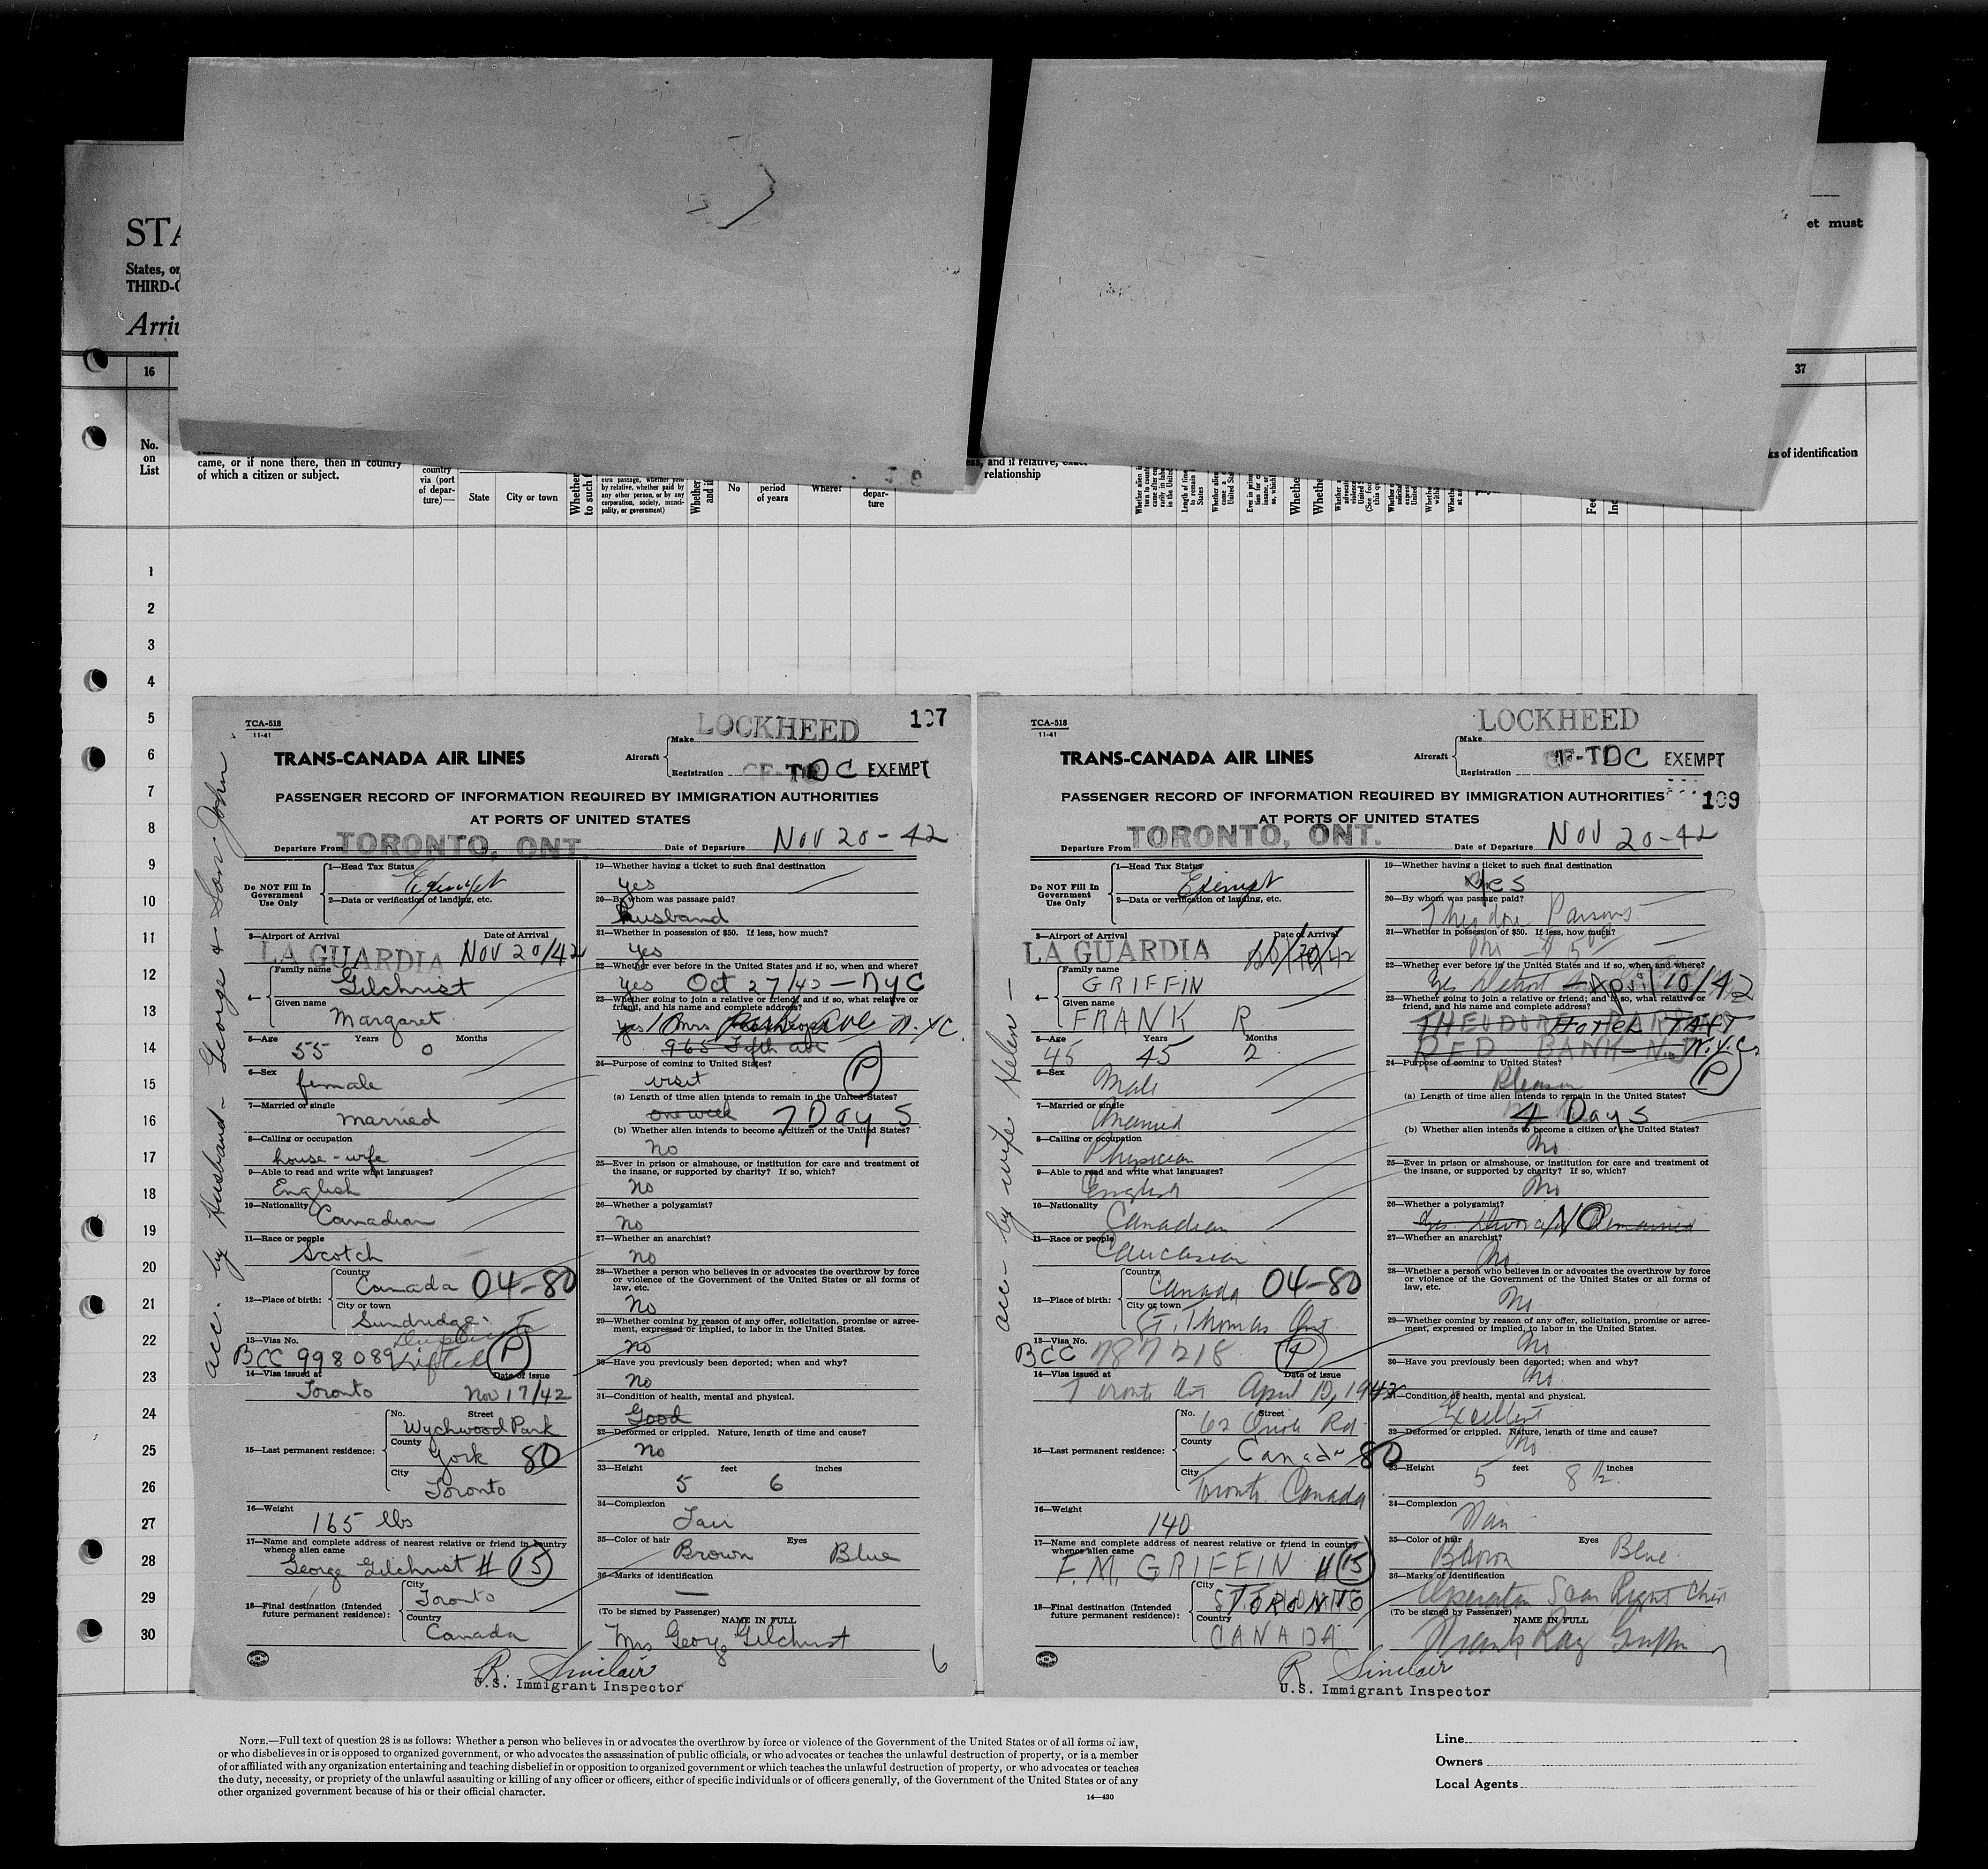 STA
States, or
THIRD-C
Arriv
et must
16
37
No.
on
List
came, or if none there, then in country
of which a citizen or subject.
country
via (port
of depar-
ture)—
State
City or town
Whether
to such
own passage, whether paid
by relative, whether paid by
any other person, or by any
corporation, society, munici-
pality, or government)
Whether
and if
No
period
of years
Where?
depar-
ture
and if relative, exact
relationship
ks of identification
1
2
3
4
5
6
7
8
9
10
11
12
13
14
15
16
17
18
19
20
21
22
23
24
25
26
27
28
29
30
acc. by Husband - George & Son John.
TCA-518
11-41
LOCKHEED
107
TRANS-CANADA AIR LINES
Aircraft
Make
Registration
CF-TDC EXEMPT
PASSENGER RECORD OF INFORMATION REQUIRED BY IMMIGRATION AUTHORITIES
AT PORTS OF UNITED STATES
Departure From TORONTO, ONT.
Date of Departure Nov 20-42
Do NOT Fill In
Government
Use Only
1—Head Tax Status
Exempt
2—Data or verification of landing, etc.
3—Airport of Arrival
Date of Arrival
LA GUARDIA Nov 20/42
4—
Family name
Gilchrist
Given name
Margaret
5—Age Years Months
55 0
6—Sex
female
7—Married or single
married
8—Calling or occupation
house-wife
9—Able to read and write what languages?
English
10—Nationality
Canadian
11—Race or people
Scotch
12—Place of birth:
Country
Canada 04-80
City or town
Sundridge.
Duplicate
13—Visa No.
BCC 998089 Lifted P
14—Visa issued at Date of issue
Toronto Nov 17/42
15—Last permanent residence:
No. Street
Wychwood Park
County
York 80
City
Toronto
16—Weight
165 lbs
17—Name and complete address of nearest relative or friend in country
whence alien came
George Gilchrist H 15
18—Final destination (Intended
future permanent residence):
City
Toronto
Country
Canada
19—Whether having a ticket to such final destination
yes
20—By whom was passage paid?
husband
21—Whether in possession of $50. If less, how much?
yes
22—Whether ever before in the United States and if so, when and where?
yes Oct 27/42 — NYC
23—Whether going to join a relative or friend; and if so, what relative or
friend, and his name and complete address?
yes Mrs Park Ave N.Y.C.
965 Fifth ave
24—Purpose of coming to United States?
visit P
(a) Length of time alien intends to remain in the United States?
one week 7 Days
(b) Whether alien intends to become a citizen of the United States?
no
25—Ever in prison or almshouse, or institution for care and treatment of
the insane, or supported by charity? If so, which?
no
26—Whether a polygamist?
no
27—Whether an anarchist?
no
28—Whether a person who believes in or advocates the overthrow by force
or violence of the Government of the United States or all forms of
law, etc.
no
29—Whether coming by reason of any offer, solicitation, promise or agree-
ment, expressed or implied, to labor in the United States.
no
30—Have you previously been deported; when and why?
no
31—Condition of health, mental and physical.
Good
32—Deformed or crippled. Nature, length of time and cause?
no
33—Height feet inches
5 6
34—Complexion
Fair
35—Color of hair Eyes
Brown Blue
36—Marks of identification
—
(To be signed by Passenger)
NAME IN FULL
Mrs George Gilchrist
R. Sinclair
U.S. Immigrant Inspector
6
acc- by wife Helen —
TCA-518
11-41
LOCKHEED
TRANS-CANADA AIR LINES
Aircraft
Make
Registration
CF-TDC EXEMPT
PASSENGER RECORD OF INFORMATION REQUIRED BY IMMIGRATION AUTHORITIES
109
AT PORTS OF UNITED STATES
Departure From TORONTO, ONT.
Date of Departure Nov 20-42
Do NOT Fill In
Government
Use Only
1—Head Tax Status
Exempt
2—Data or verification of landing, etc.
3—Airport of Arrival
Date of Arrival
LA GUARDIA
4—
Family name
GRIFFIN
Given name
FRANK R
5—Age Years Months
45 45 2
6—Sex
Male
7—Married or single
Married
8—Calling or occupation
Physician
9—Able to read and write what languages?
English
10—Nationality
Canadian
11—Race or people
Caucasian
12—Place of birth:
Country
Canada 04-80
City or town
St. Thomas Ont
13—Visa No.
BCC 787218
14—Visa issued at Date of issue
Toronto Ont April 1942
15—Last permanent residence:
No. Street
62 Oriole Rd
County
Canada 80
City
Toronto. Canada
16—Weight
140
17—Name and complete address of nearest relative or friend in country
whence alien came
F.M. GRIFFIN H 15
18—Final destination (Intended
future permanent residence):
City
TORONTO
Country
CANADA
19—Whether having a ticket to such final destination
yes
20—By whom was passage paid?
Theodore Parsons
21—Whether in possession of $50. If less, how much?
22—Whether ever before in the United States and if so, when and where?
Yes Detroit April 10/42
23—Whether going to join a relative or friend; and if so, what relative or
friend, and his name and complete address?
THEODORE PARSONS Hotel TAFT
RED BANK-N.J N.Y.C.
24—Purpose of coming to United States?
P
(a) Length of time alien intends to remain in the United States?
4 Days
(b) Whether alien intends to become a citizen of the United States?
No
25—Ever in prison or almshouse, or institution for care and treatment of
the insane, or supported by charity? If so, which?
No
26—Whether a polygamist?
NO
27—Whether an anarchist?
No
28—Whether a person who believes in or advocates the overthrow by force
or violence of the Government of the United States or all forms of
law, etc.
No
29—Whether coming by reason of any offer, solicitation, promise or agree-
ment, expressed or implied, to labor in the United States.
No
30—Have you previously been deported; when and why?
No
31—Condition of health, mental and physical.
Excellent
32—Deformed or crippled. Nature, length of time and cause?
No
33—Height feet inches
5 8 1/2
34—Complexion
35—Color of hair Eyes
Brown Blue
36—Marks of identification
Operation Scar Right Chest
(To be signed by Passenger)
NAME IN FULL
Frank Ray Griffin
R Sinclair
U.S. Immigrant Inspector
NOTE.—Full text of question 28 is as follows: Whether a person who believes in or advocates the overthrow by force or violence of the Government of the United States or of all forms of law,
or who disbelieves in or is opposed to organized government, or who advocates the assassination of public officials, or who advocates or teaches the unlawful destruction of property, or is a member
of or affiliated with any organization entertaining and teaching disbelief in or opposition to organized government or which teaches the unlawful destruction of property, or who advocates or teaches
the duty, necessity, or propriety of the unlawful assaulting or killing of any officer or officers, either of specific individuals or of officers generally, of the Government of the United States or of any
other organized government because of his or their official character.
14—430
Line
Owners
Local Agents